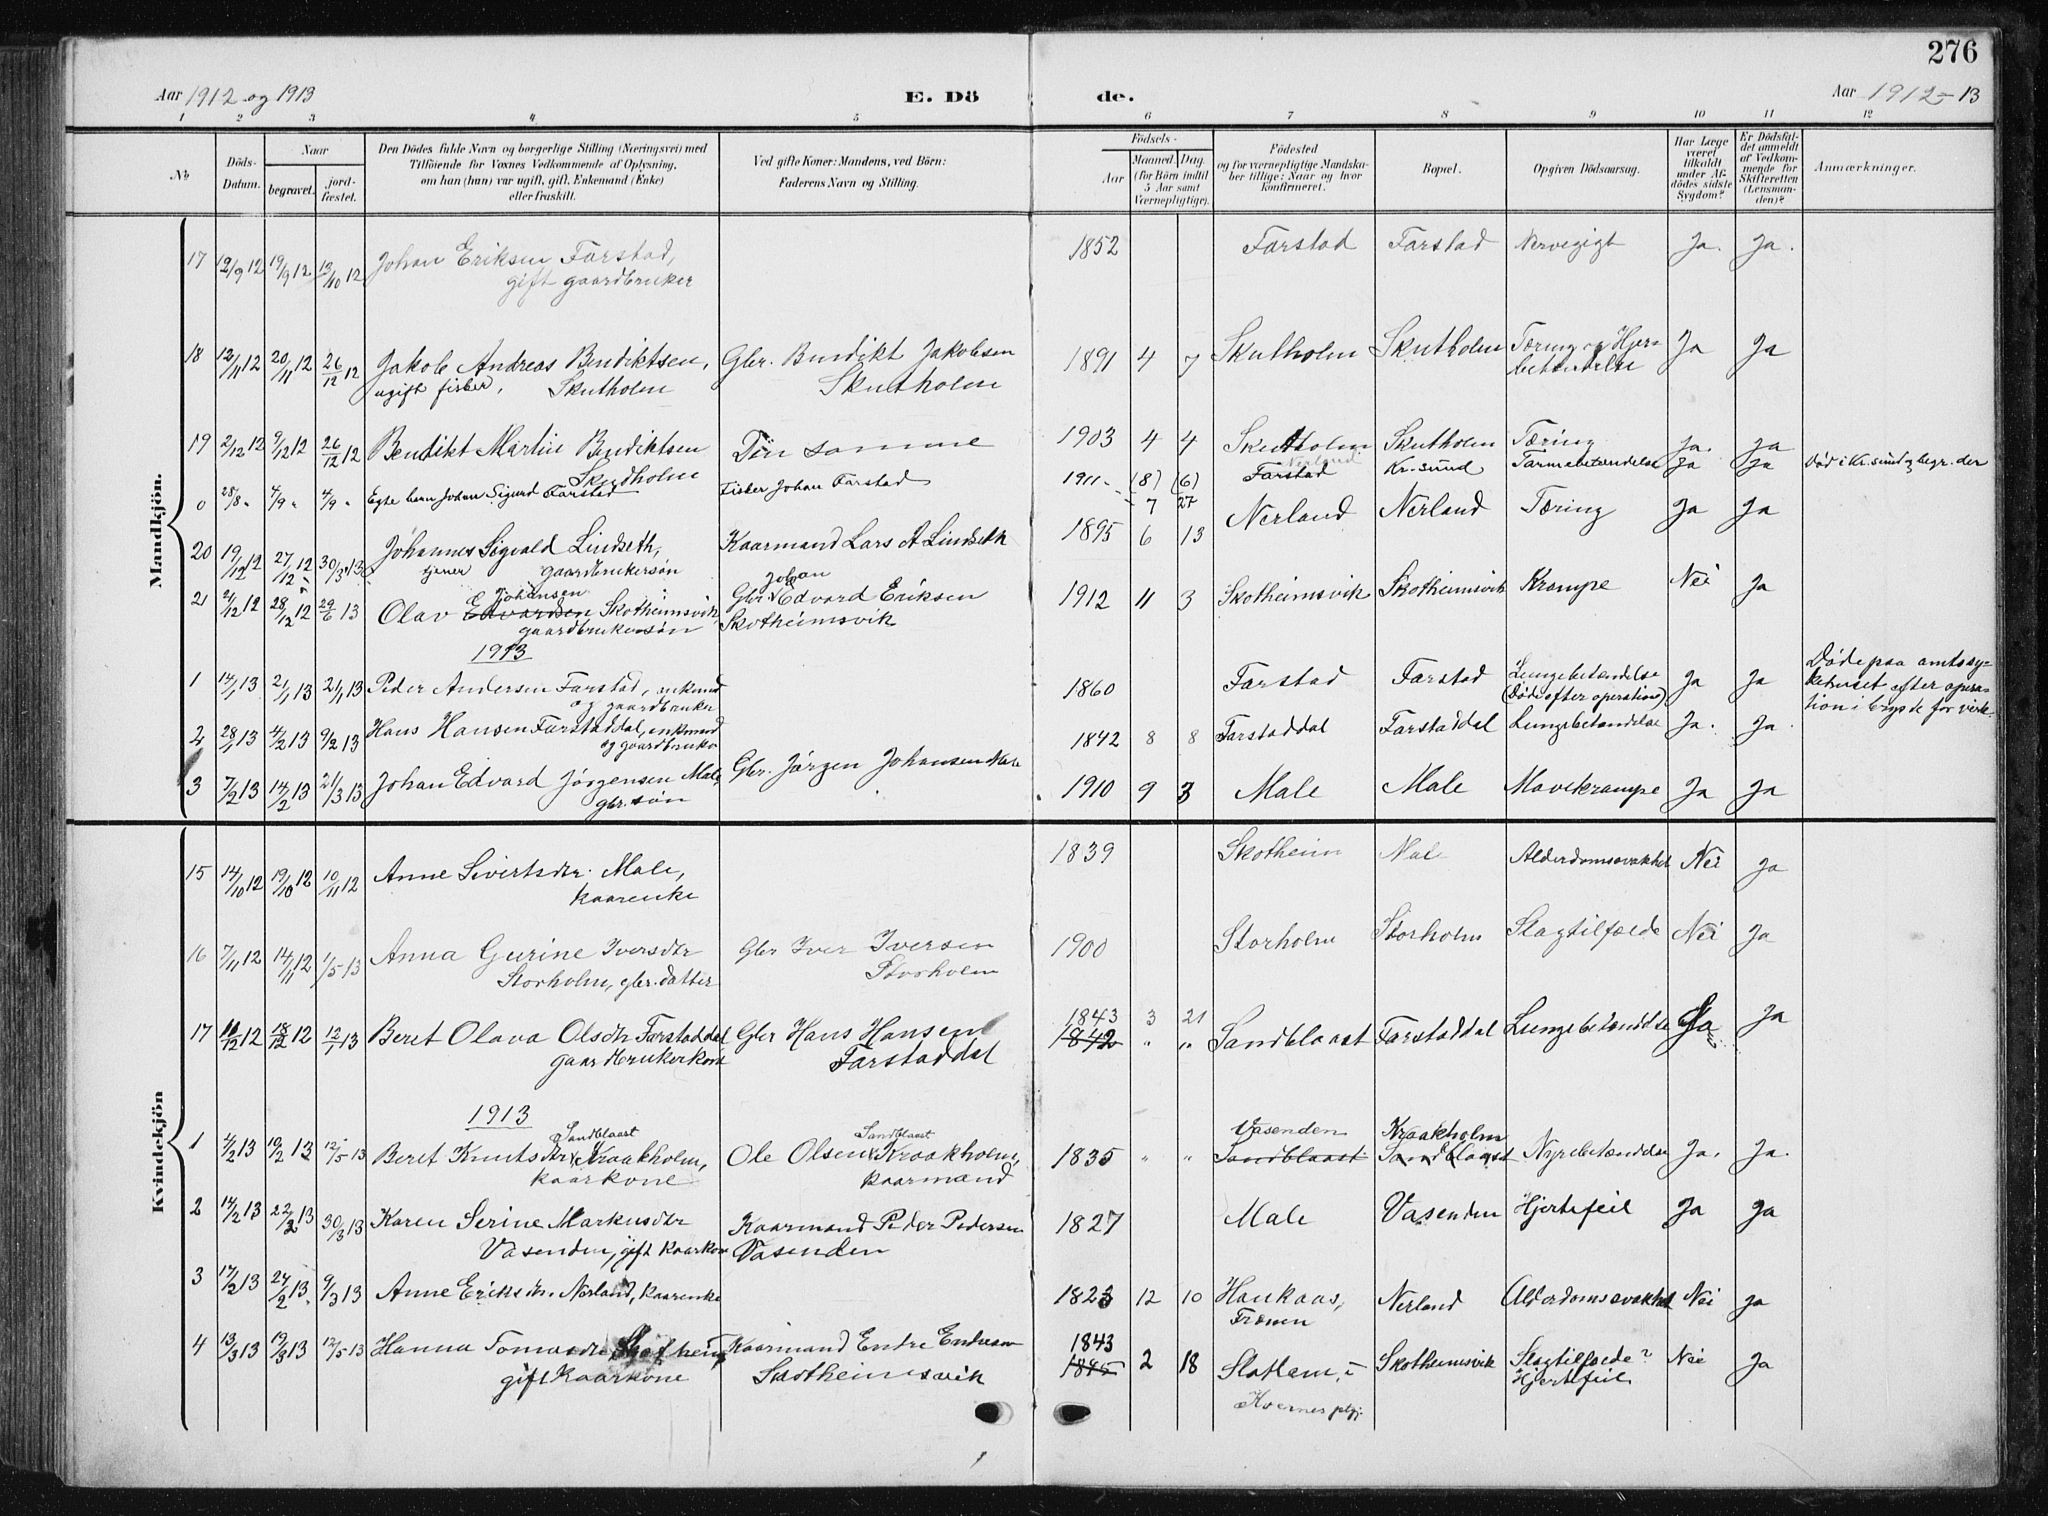 276
Aar 1912 og 1913
E. Dö
de.
Aar 1912-13
1 2 3 4 5 6 7 8 9 10 11 12
No
Döds-
Datum.
Naar
begravet.
jord-
fæstet.
Den Dödes fulde Navn og borgerlige Stilling (Næringsvei) med
Tilföiende for Voxnes Vedkommende af Oplysning,
om han (hun) var ugift, gift, Enkemand (Enke)
eller fraskilt.
Ved gifte Koner: Mandens, ved Börn:
Faderens Navn og Stilling.
Födsels-
Aar
Maaned. Dag.
(for Börn indtil
5 Aar samt
Værnepligtige).
Födested
og for værnepligtige Mandska-
ber tillige: Naar og hvor
konfirmeret.
Bopæl.
Opgiven Dödsaarsag.
Har Læge
været
tilkaldt
under Af-
dödes sidste
Sygdom?
Er Dödsfal-
det anmeldt
af Vedkom-
mende for
Skifteretten
(Lensman-
den)?
Anmærkninger.
Mandkjön.
17 12/9 12 19/9 12 13/10 12 Johan Eriksen Farstad, 1852 Farstad Farstad Nervegigt Ja. Ja.
gift gaardbruker
18 12/11 12 20/11 12 26/12 12 Jakob Andreas Bendiktsen, Gbr. Bendikt Jakobsen 1891 4 7 Skutholm Skutholm Tæring og Hjer- Ja Ja
ugift fisker, Skutholm Skutholm nebetændelse
19 2/12 12 9/12 12 26/12 12 Bendikt Martin Bendiktsen Den samme 1903 4 4 Skutholm Skutholm Tæring Ja. Ja
Skutholm Nerland
0 28/8 " 4/9 " 4/9 " Egte barn Johan Sigurd Farstad Fisker Johan Farstad 1911 (8) (6) Farstad Kr. sund Tarmebetændelse Ja Ja Död i Kr. sund og begr. der
7 27
20 19/12 12 27/12 12 30/3 13 Johannes Sigvald Lindseth, Kaarmand Lars A Lindseth 1895 6 13 Nerland Nerland Tæring Ja Ja
tjener gaardbrukersøn
21 24/12 12 28/12 12 29/6 13 Olav Edvardsen Johansen Skotheimsvik, Gbr. Johan Edvard Eriksen 1912 11 3 Skotheimsvik Skotheimsvik Krampe Nei Ja
gaardbrukersøn Skotheimsvik
1913
1 14/1 13 21/1 13 21/1 13 Peder Andersen Farstad, enkemd 1860 Farstad Farstad Lungebetændelse Ja Ja Döde paa amtssy-
og gaardbruker (Döde efter operation) kehuset efter opera-
tion i
2 28/1 13 4/2 13 9/2 13 Hans Hansen Farstaddal, enkmand 1842 8 8 Farstaddal Farstaddal Lungebetændelse Ja. Ja.
og gaardbruker
3 7/2 13 14/2 13 21/3 13 Johan Edvard Jörgensen Male, Gbr. Jörgen Johansen Male 1910 9 3 Male Male Mavekrampe Ja Ja
gbr. søn
Kvindekjön
15 14/10 12 19/10 12 10/11 12 Anne Sivertsdtr. Male, 1839 Skotheim Male Alderdomssvakhet Nei Ja
kaarenke
16 7/11 12 14/11 12 1/5 13 Anna Gurine Iversdtr Gbr Iver Iversen 1900 Storholm Storholm Slagtilfælde Nei Ja
Storholm, gbr. datter Storholm
17 10/12 12 18/12 12 12/1 13 Beret Olava Olsdtr Farstaddal Gbr Hans Hansen 1843 3 21 Sandblaast Farstaddal Lungebetændelse Ja Ja
gaardbrukerkone Farstaddal 1842 " "
1913
1 4/2 13 10/2 13 12/5 13 Beret Knutsdtr Sandblaast Kraakholm, Ole Olsen Sandblaast Kraakholm, 1835 " " Vasenden Sandblaast Kraakholm Sandblaast Nyrebetændelse Ja. Ja.
kaarkone kaarmand
2 14/2 13 22/2 13 30/3 13 Karen Serine Markusdtr Kaarmand Peder Pedersen 1827 Male Vasenden Hjertefeil Ja Ja
Vasenden, gift kaarkone Vasenden
3 17/2 13 24/2 13 9/3 13 Anne Eriksdtr. Nerland, kaarenke 1823 12 10 Haukaas, Nerland Alderdomssvakhet Nei Ja
Frænen
4 13/3 13 19/3 13 12/5 13 Hanna Tomasdtr Skotheim Kaarmand Endre Endresen 1843 1845 2 18 Slatlem, i Skotheimsvik Slagtilfælde? Nei Ja
gift kaarkone Skotheimsvik Kvernes pgj. Hjertefeil